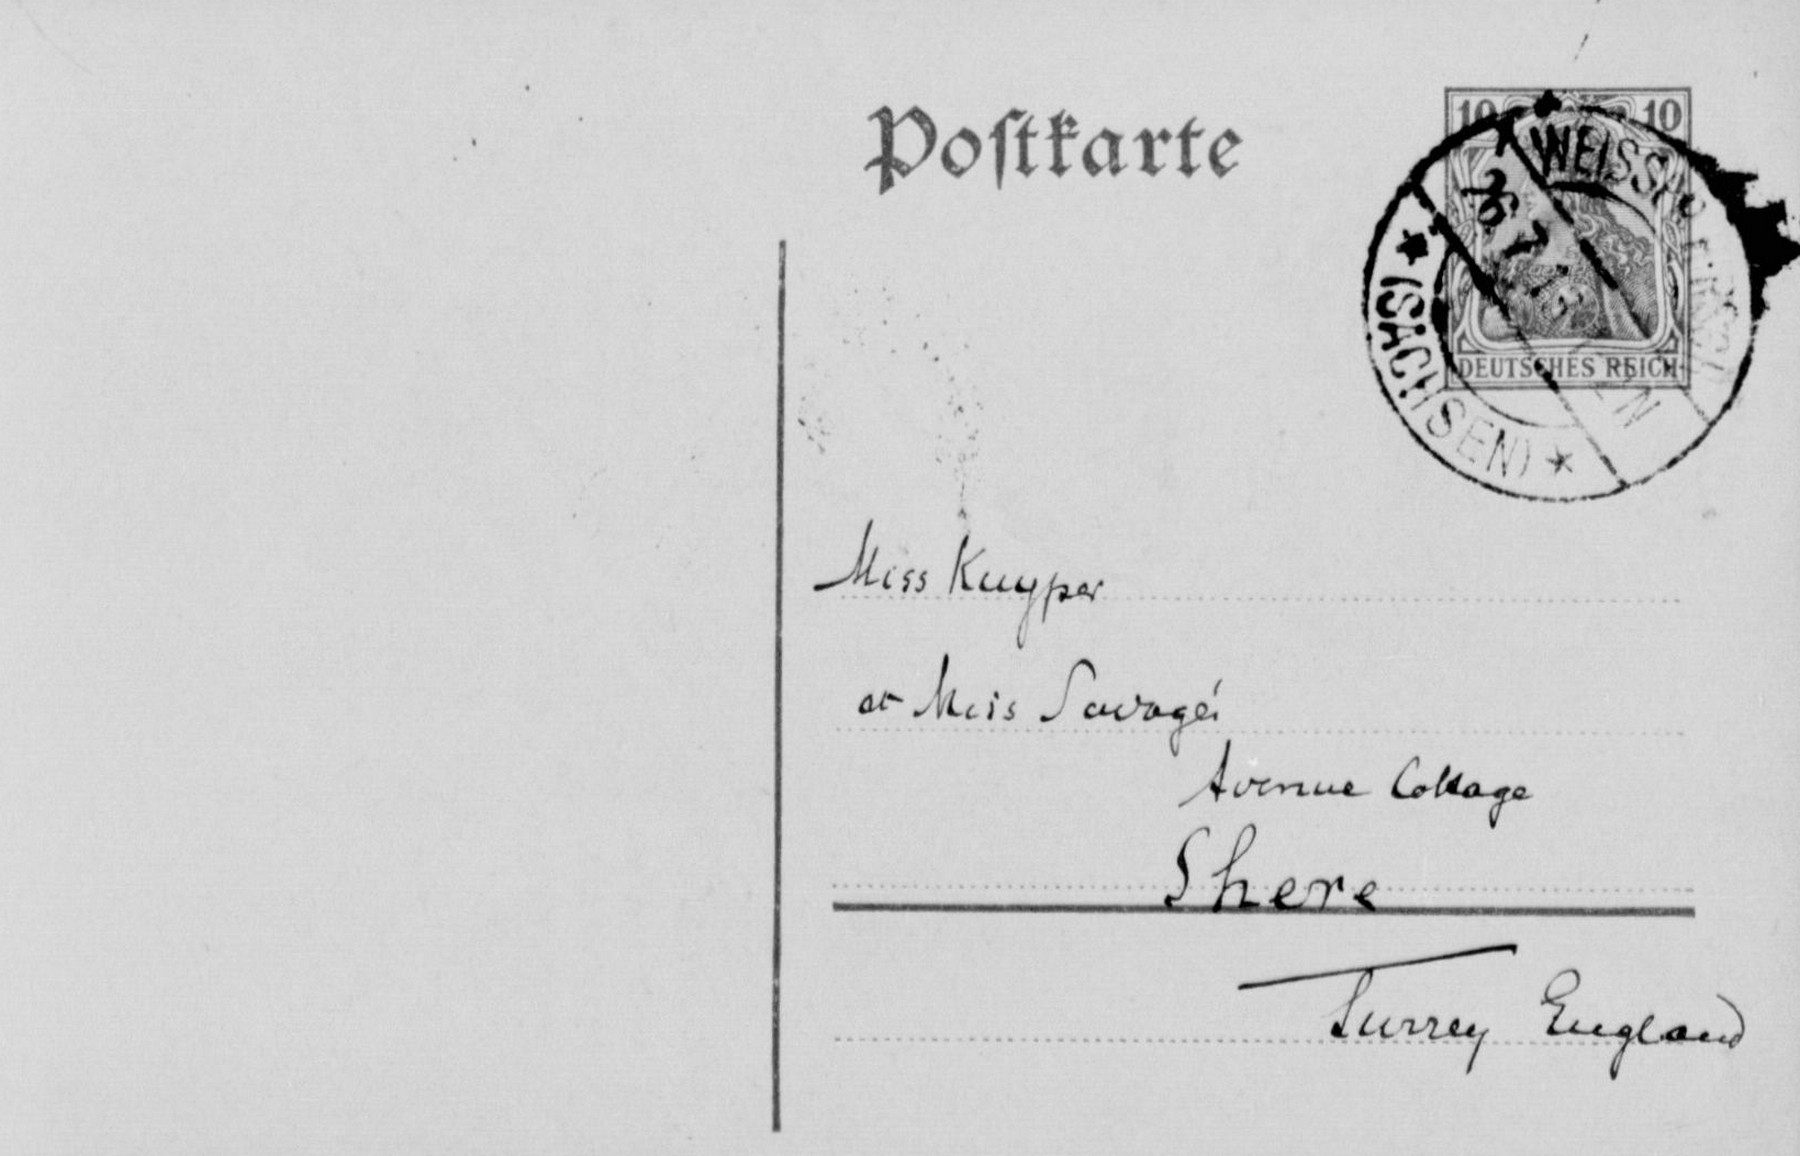 Postkarte
10 10
DEUTSCHES REICH
(SACHSEN)
Miss Kuyper
at Miss Savage's
Avenue Cottage
Shere
Surrey England